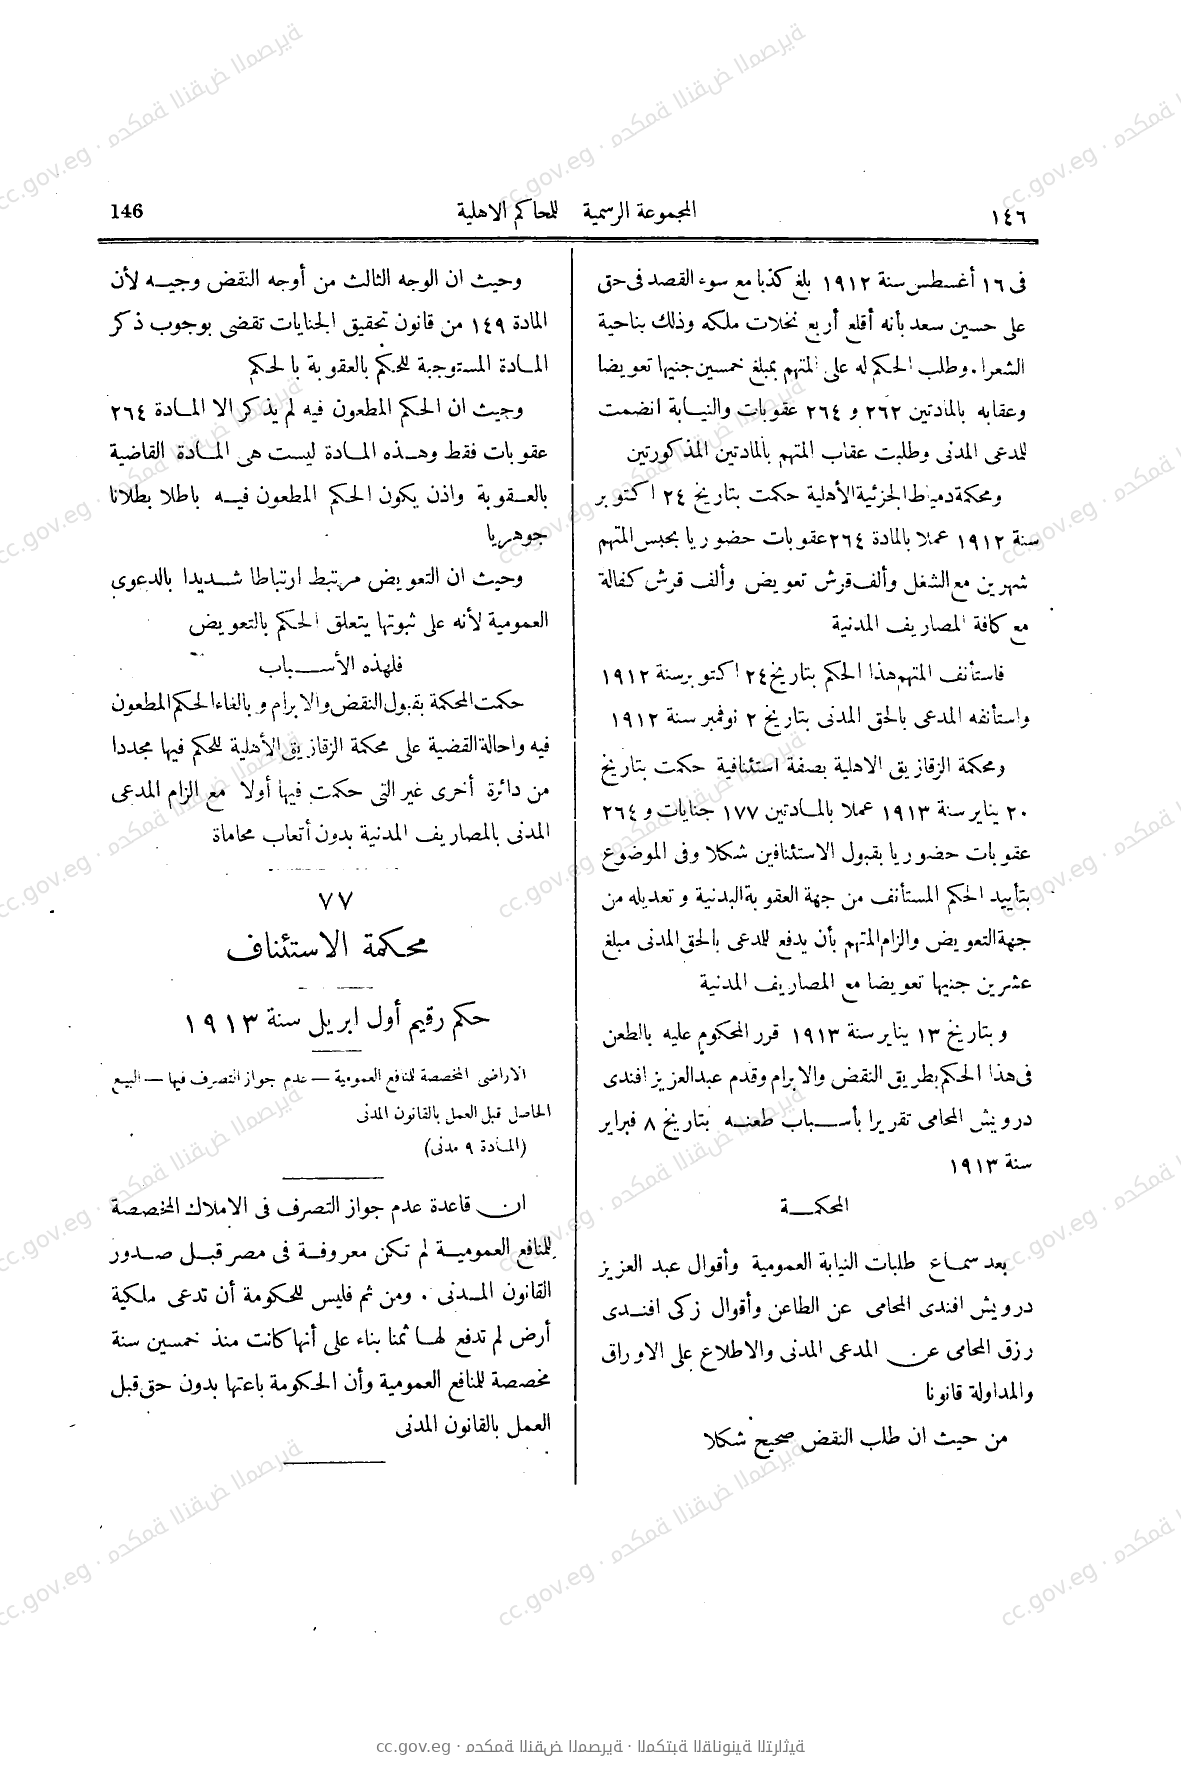 ١٤٦ المجموعة الرسمية للمحاكم الاهلية 146
فى ١٦ أغسطس سنة ١٩١٢ بلغ كذبا مع سوء القصد فى حق
على حسين سعد بأنه أقلع أربع نخلات ملكه وذلك بناحية
الشعرا . وطلب الحكم له على المتهم بمبلغ خمسين جنيها تعويضا
وعقابه بالمادتين ٢٦٢ و ٢٦٤ عقوبات والنيابة انضمت
للمدعى المدنى وطلبت عقاب المتهم بالمادتين المذكورتين
ومحكمة دمياط الجزئية الأهلية حكمت بتاريخ ٢٤ اكتوبر
سنة ١٩١٢ عملا بالمادة ٢٦٤ عقوبات حضوريا بحبس المتهم
شهرين مع الشغل وألف قرش تعويض وألف قرش كفالة
مع كافة المصاريف المدنية
فاستأنف المتهم هذا الحكم بتاريخ ٢٤ اكتوبر سنة ١٩١٢
واستأنفه المدعى بالحق المدنى بتاريخ ٢ نوفمبر سنة ١٩١٢
ومحكمة الزقازيق الاهلية بصفة استئنافية حكمت بتاريخ
٢٠ يناير سنة ١٩١٣ عملا بالمادتين ١٧٧ جنايات و ٢٦٤
عقوبات حضوريا بقبول الاستئنافين شكلا وفى الموضوع
بتأييد الحكم المستأنف من جهة العقوبة البدنية وتعديله من
جهة التعويض والزام المتهم بأن يدفع للمدعى بالحق المدنى مبلغ
عشرين جنيها تعويضا مع المصاريف المدنية
وبتاريخ ١٣ يناير سنة ١٩١٣ قرر المحكوم عليه بالطعن
فى هذا الحكم بطريق النقض والابرام وقدم عبد العزيز افندى
درويش المحامى تقريرا بأسباب طعنه بتاريخ ٨ فبراير
سنة ١٩١٣
المحكمة
بعد سماع طلبات النيابة العمومية وأقوال عبد العزيز
درويش افندى المحامى عن الطاعن وأقوال زكى افندى
رزق المحامى عن المدعى المدنى والاطلاع على الاوراق
والمداولة قانونا
من حيث ان طلب النقض صحيح شكلا
وحيث ان الوجه الثالث من أوجه النقض وجيه لأن
المادة ١٤٩ من قانون تحقيق الجنايات تقضى بوجوب ذكر
المادة المستوجبة للحكم بالعقوبة بالحكم
وحيث ان الحكم المطعون فيه لم يذكر الا المادة ٢٦٤
عقوبات فقط وهذه المادة ليست هى المادة القاضية
بالعقوبة واذن يكون الحكم المطعون فيه باطلا بطلانا
جوهريا
وحيث ان التعويض مرتبط ارتباطا شديدا بالدعوى
العمومية لأنه على ثبوتها يتعلق الحكم بالتعويض
فلهذه الأسباب
حكمت المحكمة بقبول النقض والابرام وبالغاء الحكم المطعون
فيه واحالة القضية على محكمة الزقازيق الأهلية للحكم فيها مجددا
من دائرة أخرى غير التى حكمت فيها أولا مع الزام المدعى
المدنى بالمصاريف المدنية بدون أتعاب محاماة
٧٧
محكمة الاستئناف
حكم رقيم أول ابريل سنة ١٩١٣
الاراضى المخصصة للمنافع العمومية — عدم جواز التصرف فيها — البيع
الحاصل قبل العمل بالقانون المدنى
(المادة ٩ مدنى)
ان قاعدة عدم جواز التصرف فى الاملاك المخصصة
للمنافع العمومية لم تكن معروفة فى مصر قبل صدور
القانون المدنى . ومن ثم فليس للحكومة أن تدعى ملكية
أرض لم تدفع لها ثمنا بناء على أنها كانت منذ خمسين سنة
مخصصة للمنافع العمومية وأن الحكومة باعتها بدون حق قبل
العمل بالقانون المدنى
cc.gov.eg · محكمة النقض المصرية · المكتبة القانونية التراثية